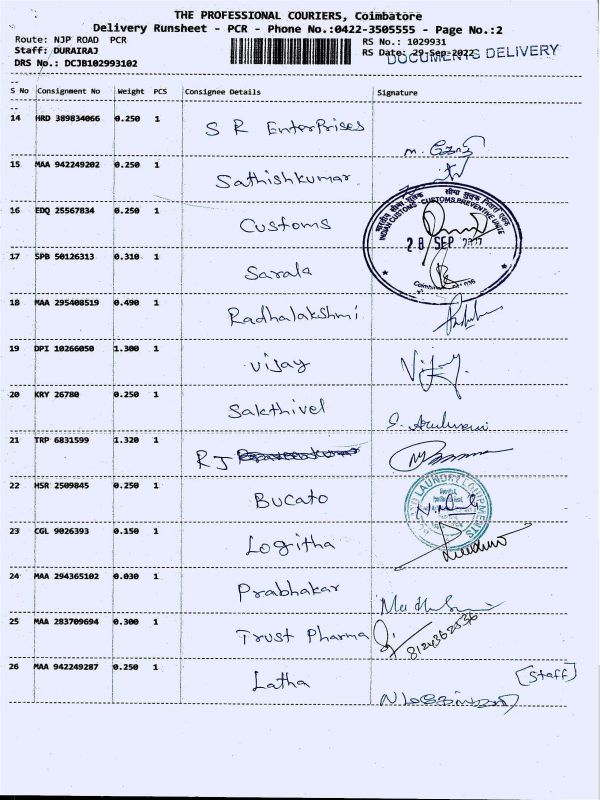 THE PROFESSIONAL COURIERS, Coimbatore
Delivery Runsheet - PCR - Phone No.:0422-3505555 - Page No.:2
Route: NJP ROAD PCR
RS No.: 1029931
Staff: DURAIRAJ
RS Date: 29-Sep-2022
DOCUMENTS DELIVERY
DRS No.: DCJB102993102
S No Consignment No Weight PCS Consignee Details Signature
14 HRD 389834066 0.250 1 S R Enterprises
15 MAA 942249202 0.250 1 Sathishkumar
16 EDQ 25567834 0.250 1 Customs
भारतीय सीमा शुल्क सीमा शुल्क निवारक एकक
INDIAN CUSTOMS - CUSTOMS PREVENTIVE UNIT
28 SEP 2022
17 SPB 50126313 0.310 1 Sarala
18 MAA 295408519 0.490 1 Radhalakshmi
19 DPI 10266050 1.300 1 Vijay Vijay.
20 KRY 26780 0.250 1 Sakthivel
21 TRP 6831599 1.320 1 R J
22 HSR 2509845 0.250 1 Bucato
LAUNDRY EQUIPMENTS
23 CGL 9026393 0.150 1 Logitha
24 MAA 294365102 0.030 1 Prabhakar
25 MAA 283709694 0.300 1 Trust Pharma 8124362536
26 MAA 942249287 0.250 1 Latha [Staff]